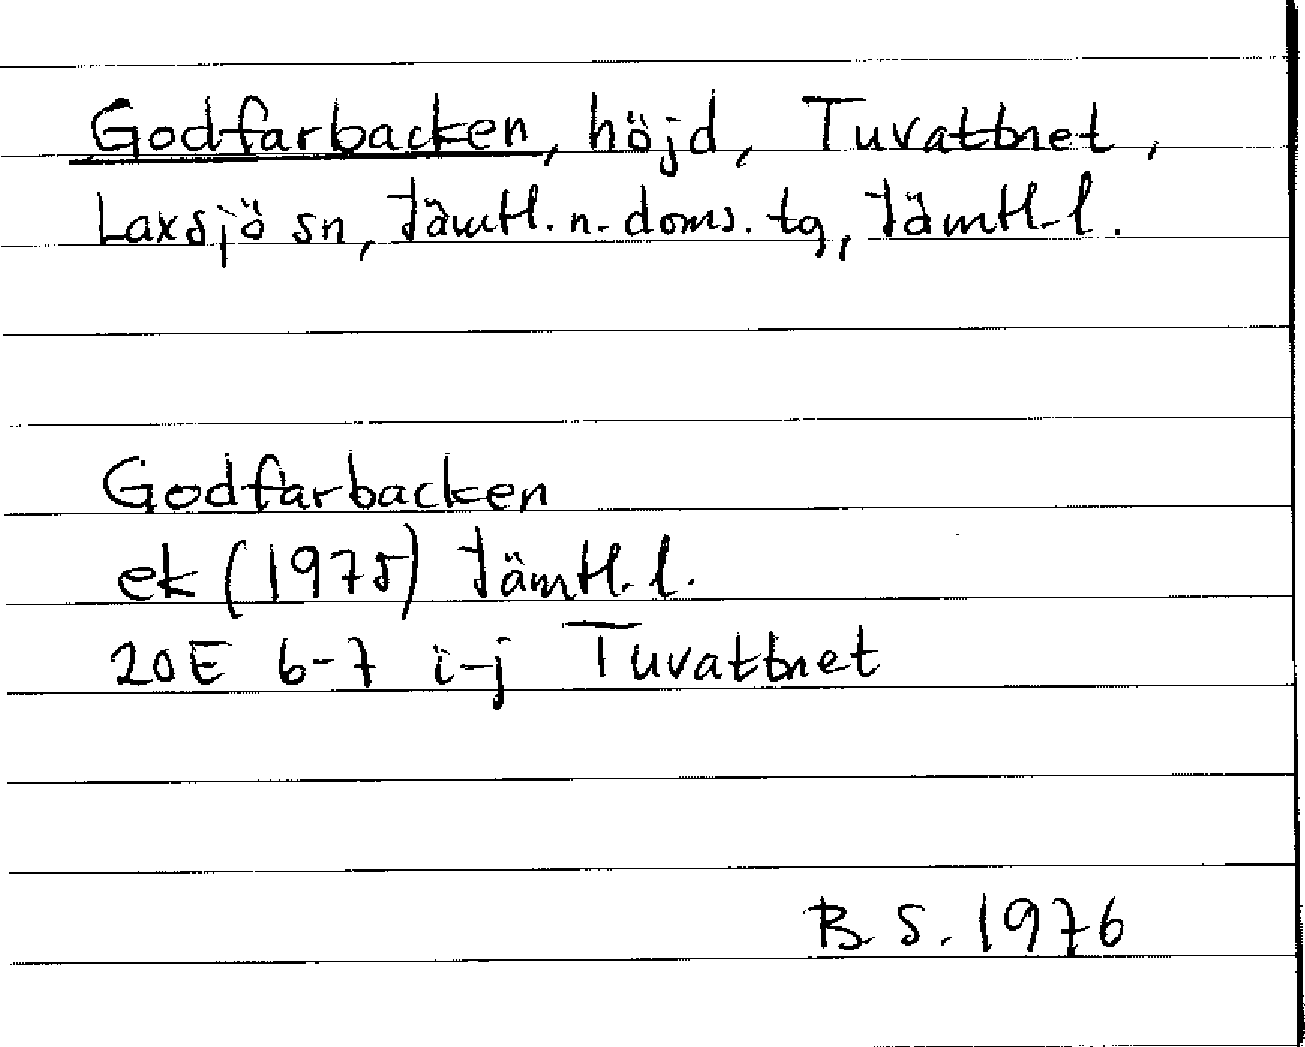 Godfarbacken, höjd, Tuvattnet,
Laxsjö sn, Jämtl. n. doms. tg, Jämtl. l.
Godfarbacken
ek (1975) Jämtl. l.
20E 6-7 i-j Tuvattnet
B. S. 1976